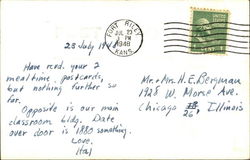 FORT RILEY
JUL 23
1 PM
1948
KANS.
23 July 1948
Have recd. your 2
mealtime postcards,
but nothing further so
far.
Opposite is our main
classroom bldg. Date
over door is 1880 something.
Love,
Hal
Mr. & Mrs. H. E. Bergman
1928 W. Morse Ave.
Chicago 26, Illinois